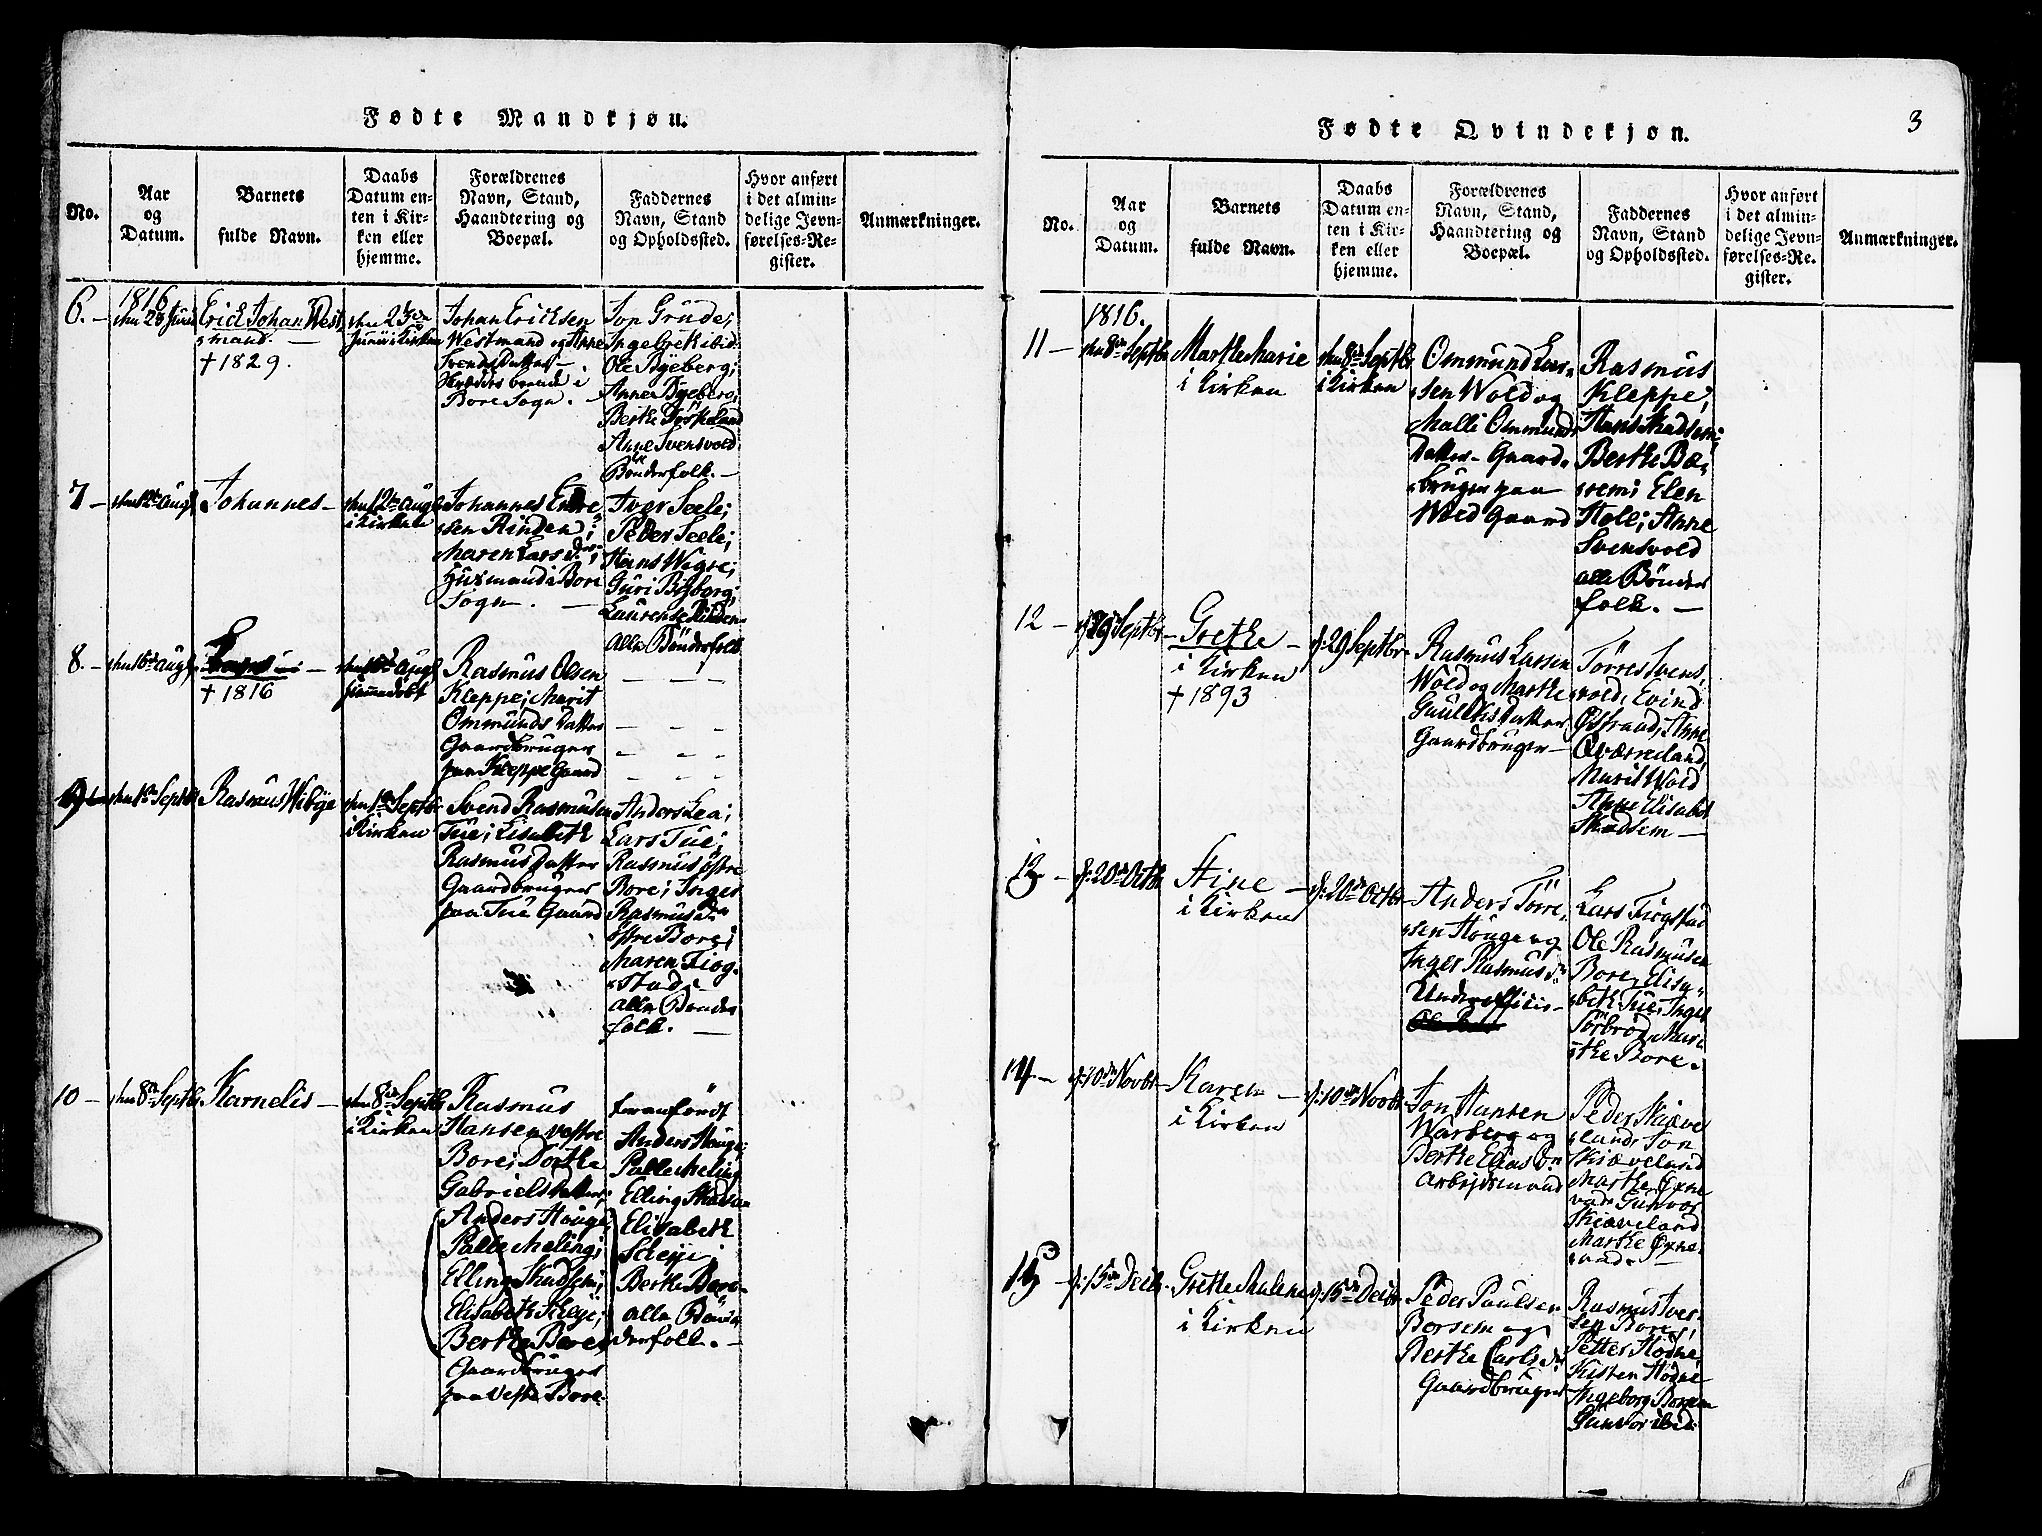 Fødte Mandkjøn.
No.
Aar
og
Datum.
Barnets
fulde Navn.
Daabs
Datum en-
ten i Kir-
ken eller
hjemme.
Forældrenes
Navn, Stand,
Haandtering og
Boepæl.
Faddernes
Navn, Stand
og Opholdssted.
Hvor anført
i det almin-
delige Jevn-
førelses-Re-
gister.
Anmærkninger.
6. -
1816
Erick Johan West
mand.
+ 1829.
Johan Ericksen
Westmand og Anne
Svends Datter -
i
Bore Sogn. -
Ole Byeberg;
Anne Byeberg;
Berthe
Anne Svensvold
Bønderfolk. -
7 -
den 12te Aug
Johannes -
den 12te Aug
i Kirken
Johannes
sen Rinden;
Maren Lars Dr;
Huusmand i Bore
Sogn. -
Iver Seele;
Peder Seele;
Hans Wigre;
Guri
Laurense Rinden
Alle Bønderfolk
8. -
den 16de Aug
Lars -
+ 1816
den 16de Aug
hiemmedøbt
Rasmus Olsen
Kleppe; Marit
Ommunds Datter
Gaardbruger
paa Kleppe Gaard
9 -
den 1ste Septbr
Rasmus Wibye
den 1ste Septbr
i Kirken
Svend Rasmusen
Tue; Elisabeth
Rasmus Datter
Gaardbruger
paa Tue Gaard
Anders Lea;
Lars Tue;
Rasmus østre
Bore; Inger
Rasmus Dr
østre Bore;
Maren Tiog-
stad;
alle Bønder
folk. -
10 -
den 8de Septbr
Karnelis -
den 8de Septbr
i Kirken
Rasmus
Hansen vestre
Bore; Dorthe
Gabriels Datter;
Anders Houge;
Palle Meling;
Elling Skadsem;
Elisabeth Scheie;
Berthe Bore;
Gaardbruger
paa Vestre Bore.
foranfördt
Anders Houge;
Palle Meling
Elling Skadsem
Elisabeth
Scheie
Berthe Bore -
alle Bøn-
derfolk. -
3
Fødte Qvindekjøn.
No.
Aar
og
Datum.
Barnets
fulde Navn.
Daabs
Datum en-
ten i Kir-
ken eller
hjemme.
Forældrenes
Navn, Stand,
Haandtering og
Boepæl.
Faddernes
Navn, Stand
og Opholdssted.
Hvor anført
i det almin-
delige Jevn-
førelses-Re-
gister.
Anmærkninger.
11 -
1816.
den 8de Septbr
Marthe Marie
i Kirken
den 8de Septbr
i Kirken
Ommund Lar-
sen Wold og
Malli Ommunds
Datter - Gaard-
bruger paa
Wold Gaard
Rasmus
Kleppe;
Hans Skadsem;
Berthe Bo-
rem; Elen
Hole; Anne
Svensvold
alle Bønder
folk. -
12 -
29 Septbr -
Grethe -
i Kirken
+ 1893
d: 29 Septbr -
Rasmus Larsen
Wold og Marthe
Gaulths Datter
Gaardbruger -
Tørres Svens-
vold, Evind
Østraad, Anne
Qværneland,
Marit Wold
Anne Elisabet
Skadsem -
13 -
d: 20de Octbr
Stine -
i Kirken
d: 20de Octbr -
Anders Törre-
sen Houge og
Inger Rasmus Dr
Underofficir -
Lars Tiogstad
Ole Rasmusen
Bore, Elisa-
beth Tue, Inger
the Bore.
14 -
d: 10de Novbr -
Karen -
i Kirken
d: 10de Novbr -
Jon Hansen
Warberg og
Berthe Elias Dr
Arbejdsmand
Peder Skiæve
land, Jon
Skiæveland
Marthe Øxne
vad, Gunvor
Skiæveland
Marthe Øxne-
vad. -
15 -
d: 15de Decbr.
Grethe Malene
i Kirken
d: 15de Decbr -
Peder Paulsen
Borsem og
Berthe Carls Dr
Gaardbruger
Rasmus Iver-
sen Bore,
Petter Hodne,
Kisten Hodne
Ingeborg Borsem
Gunvor ibid.